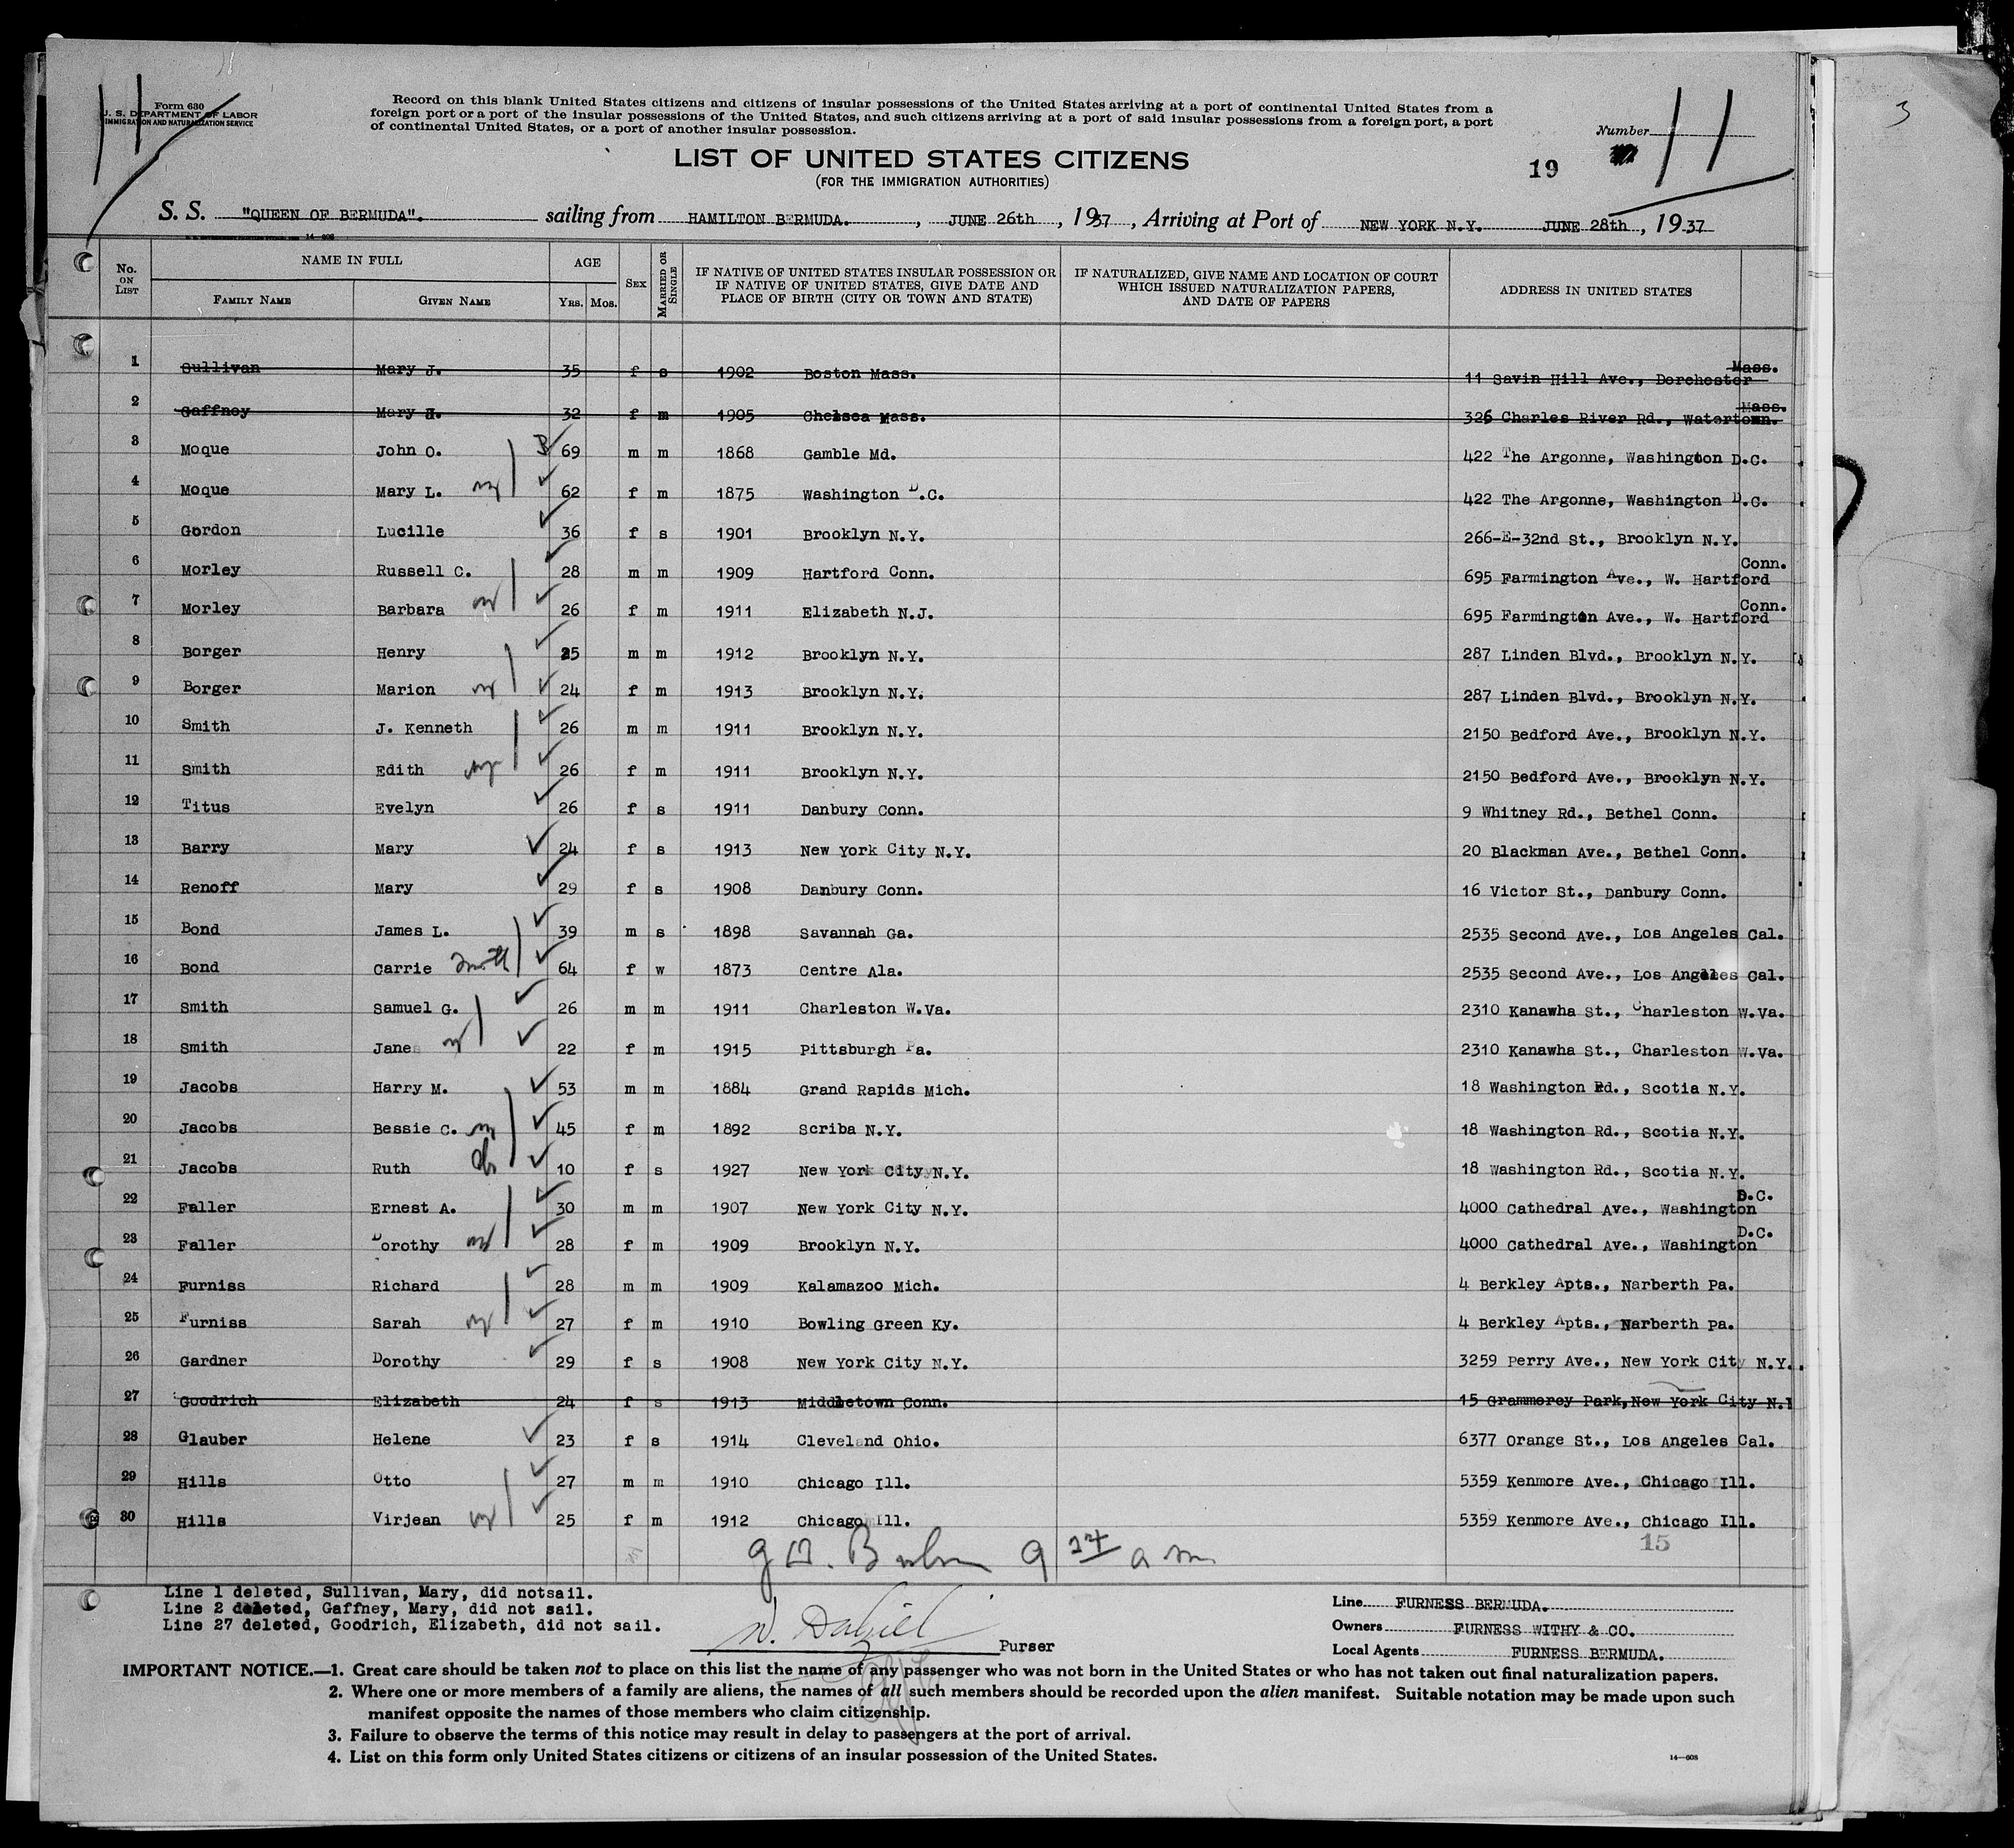 11
11
Form 630
U. S. DEPARTMENT OF LABOR
IMMIGRATION AND NATURALIZATION SERVICE
Record on this blank United States citizens and citizens of insular possessions of the United States arriving at a port of continental United States from a
foreign port or a port of the insular possessions of the United States, and such citizens arriving at a port of said insular possessions from a foreign port, a port
of continental United States, or a port of another insular possession.
Number 11
3
LIST OF UNITED STATES CITIZENS
(FOR THE IMMIGRATION AUTHORITIES)
19
S. S. "QUEEN OF BERMUDA". sailing from HAMILTON BERMUDA. , JUNE 26th , 1937 , Arriving at Port of NEW YORK N.Y. JUNE 28th , 1937
14—608
No. ON LIST NAME IN FULL AGE SEX MARRIED OR SINGLE IF NATIVE OF UNITED STATES INSULAR POSSESSION OR IF NATIVE OF UNITED STATES, GIVE DATE AND PLACE OF BIRTH (CITY OR TOWN AND STATE) IF NATURALIZED, GIVE NAME AND LOCATION OF COURT WHICH ISSUED NATURALIZATION PAPERS, AND DATE OF PAPERS ADDRESS IN UNITED STATES
FAMILY NAME GIVEN NAME YRS. MOS.
1 Sullivan Mary J. 35 f s 1902 Boston Mass. 11 Savin Hill Ave., Dorchester Mass.
2 Gaffney Mary H. 32 f m 1905 Chelsea Mass. 326 Charles River Rd., Watertown. Mass.
3 Moque John O. 69 m m 1868 Gamble Md. 422 The Argonne, Washington D.C.
4 Moque Mary L. 62 f m 1875 Washington D.C. 422 The Argonne, Washington D.C.
5 Gordon Lucille 36 f s 1901 Brooklyn N.Y. 266-E-32nd St., Brooklyn N.Y.
6 Morley Russell C. 28 m m 1909 Hartford Conn. 695 Farmington Ave., W. Hartford Conn.
7 Morley Barbara 26 f m 1911 Elizabeth N.J. 695 Farmington Ave., W. Hartford Conn.
8 Borger Henry 25 m m 1912 Brooklyn N.Y. 287 Linden Blvd., Brooklyn N.Y.
9 Borger Marion 24 f m 1913 Brooklyn N.Y. 287 Linden Blvd., Brooklyn N.Y.
10 Smith J. Kenneth 26 m m 1911 Brooklyn N.Y. 2150 Bedford Ave., Brooklyn N.Y.
11 Smith Edith 26 f m 1911 Brooklyn N.Y. 2150 Bedford Ave., Brooklyn N.Y.
12 Titus Evelyn 26 f s 1911 Danbury Conn. 9 Whitney Rd., Bethel Conn.
13 Barry Mary 24 f s 1913 New York City N.Y. 20 Blackman Ave., Bethel Conn.
14 Renoff Mary 29 f s 1908 Danbury Conn. 16 Victor St., Danbury Conn.
15 Bond James L. 39 m s 1898 Savannah Ga. 2535 Second Ave., Los Angeles Cal.
16 Bond Carrie 64 f w 1873 Centre Ala. 2535 Second Ave., Los Angeles Cal.
17 Smith Samuel G. 26 m m 1911 Charleston W.Va. 2310 Kanawha St., Charleston W.Va.
18 Smith Jane 22 f m 1915 Pittsburgh Pa. 2310 Kanawha St., Charleston W.Va.
19 Jacobs Harry M. 53 m m 1884 Grand Rapids Mich. 18 Washington Rd., Scotia N.Y.
20 Jacobs Bessie C. 45 f m 1892 Scriba N.Y. 18 Washington Rd., Scotia N.Y.
21 Jacobs Ruth 10 f s 1927 New York City N.Y. 18 Washington Rd., Scotia N.Y.
22 Faller Ernest A. 30 m m 1907 New York City N.Y. 4000 Cathedral Ave., Washington D.C.
23 Faller Dorothy 28 f m 1909 Brooklyn N.Y. 4000 Cathedral Ave., Washington D.C.
24 Furniss Richard 28 m m 1909 Kalamazoo Mich. 4 Berkley Apts., Narberth Pa.
25 Furniss Sarah 27 f m 1910 Bowling Green Ky. 4 Berkley Apts., Narberth Pa.
26 Gardner Dorothy 29 f s 1908 New York City N.Y. 3259 Perry Ave., New York City N.Y.
27 Goodrich Elizabeth 24 f s 1913 Middletown Conn. 15 Grammercy Park, New York City N.Y
28 Glauber Helene 23 f s 1914 Cleveland Ohio. 6377 Orange St., Los Angeles Cal.
29 Hills Otto 27 m m 1910 Chicago Ill. 5359 Kenmore Ave., Chicago Ill.
30 Hills Virjean 25 f m 1912 Chicago Ill. 5359 Kenmore Ave., Chicago Ill.
15
Line 1 deleted, Sullivan, Mary, did notsail.
Line 2 deleted, Gaffney, Mary, did not sail.
Line 27 deleted, Goodrich, Elizabeth, did not sail.
Purser
Line FURNESS BERMUDA.
Owners FURNESS WITHY & CO.
Local Agents FURNESS BERMUDA.
IMPORTANT NOTICE.—1. Great care should be taken not to place on this list the name of any passenger who was not born in the United States or who has not taken out final naturalization papers.
2. Where one or more members of a family are aliens, the names of all such members should be recorded upon the alien manifest. Suitable notation may be made upon such
manifest opposite the names of those members who claim citizenship.
3. Failure to observe the terms of this notice may result in delay to passengers at the port of arrival.
4. List on this form only United States citizens or citizens of an insular possession of the United States.
14—608